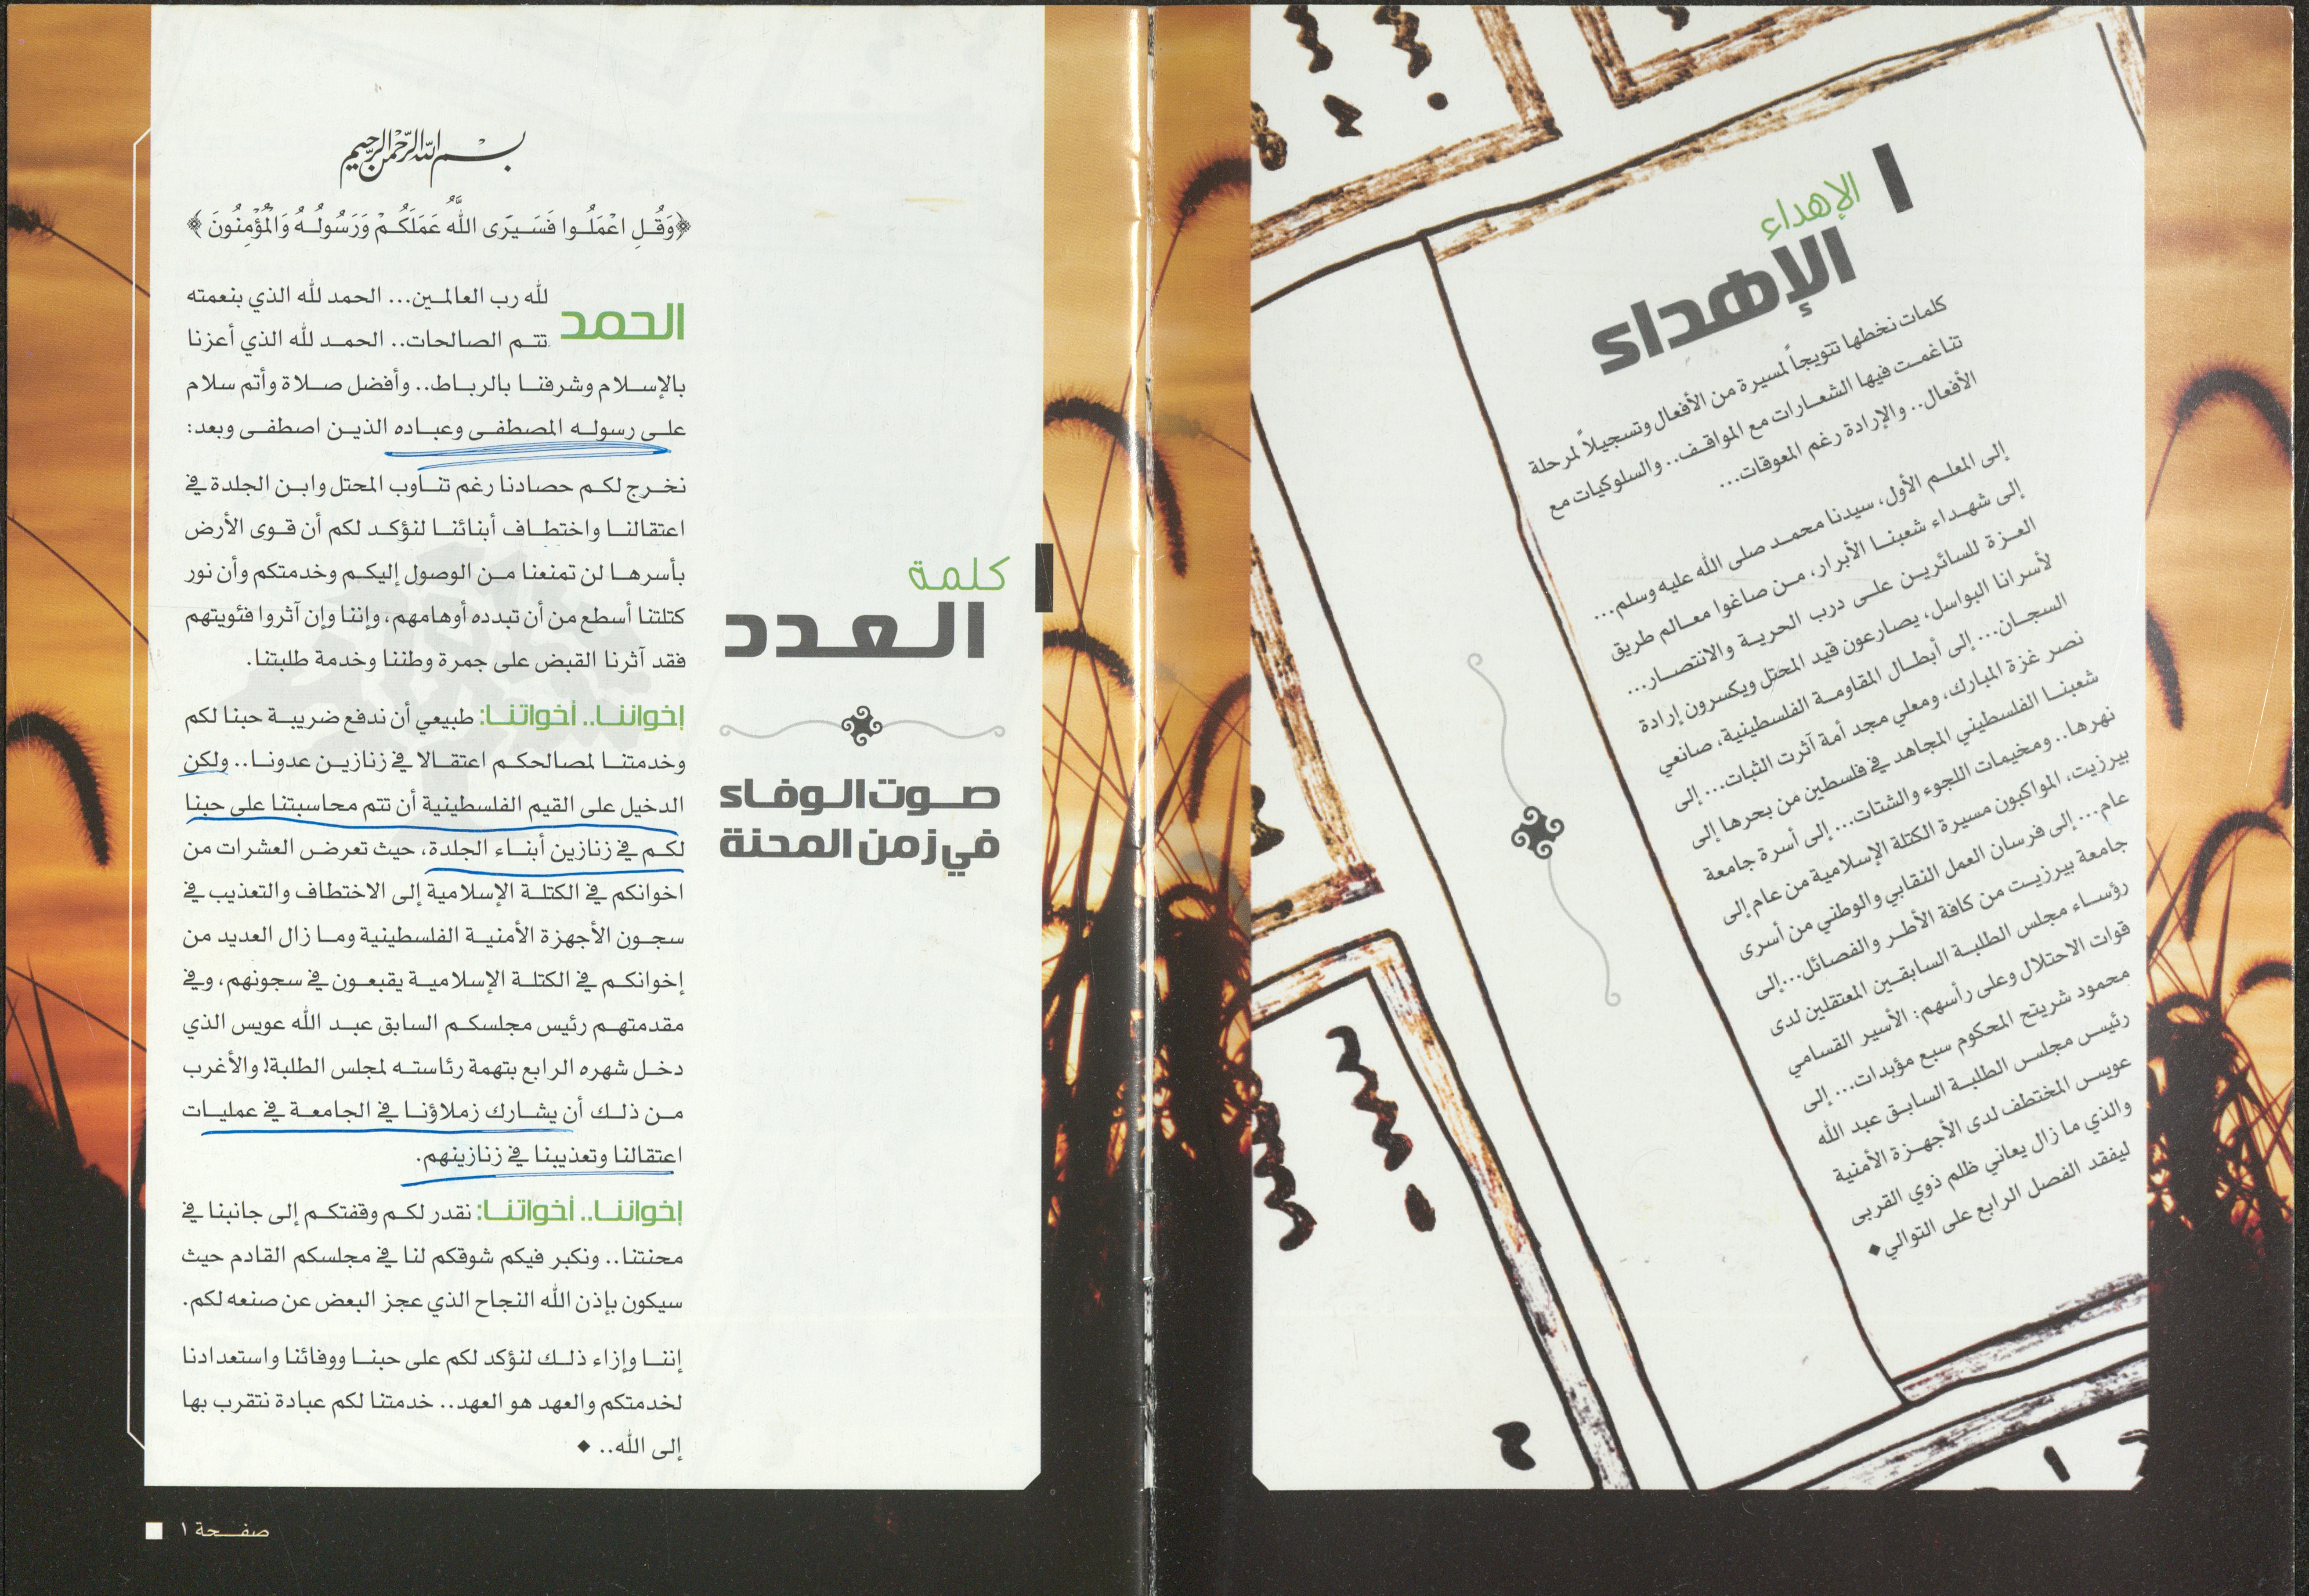 الإهداء
الإهداء
كلمات نخطها تتويجاً لمسيرة من الأفعال وتسجيلاً لمرحلة
تناغمت فيها الشعارات مع المواقف.. والسلوكيات مع
الأفعال.. والإرادة رغم المعوقات...
إلى المعلم الأول، سيدنا محمد صلى الله عليه وسلم...
إلى شهداء شعبنا الأبرار، من صاغوا معالم طريق
العزة للسائرين على درب الحرية والانتصار...
لأسرانا البواسل، يصارعون قيد المحتل ويكسرون إرادة
السجان... إلى أبطال المقاومة الفلسطينية، صانعي
نصر غزة المبارك، ومعلي مجد أمة آثرت الثبات... إلى
شعبنا الفلسطيني المجاهد في فلسطين من بحرها إلى
نهرها.. ومخيمات اللجوء والشتات... إلى أسرة جامعة
بيرزيت، المواكبون مسيرة الكتلة الإسلامية من عام إلى
عام... إلى فرسان العمل النقابي والوطني من أسرى
جامعة بيرزيت من كافة الأطر والفصائل...إلى
رؤساء مجلس الطلبة السابقين المعتقلين لدى
قوات الاحتلال وعلى رأسهم: الأسير القسامي
محمود شريتح المحكوم سبع مؤبدات... إلى
رئيس مجلس الطلبة السابق عبد الله
عويس المختطف لدى الأجهزة الأمنية
والذي ما زال يعاني ظلم ذوي القربى
ليفقد الفصل الرابع على التوالي
كلمة
العدد
صوت الوفاء
في زمن المحنة
بسم الله الرحمن الرحيم
﴿وَقُلِ اعْمَلُوا فَسَيَرَى اللَّهُ عَمَلَكُمْ وَرَسُولُهُ وَالْمُؤْمِنُونَ﴾
الحمد لله رب العالمين... الحمد لله الذي بنعمته
تتم الصالحات.. الحمد لله الذي أعزنا
بالإسلام وشرفنا بالرباط.. وأفضل صلاة وأتم سلام
على رسوله المصطفى وعباده الذين اصطفى وبعد:
نخرج لكم حصادنا رغم تناوب المحتل وابن الجلدة في
اعتقالنا واختطاف أبنائنا لنؤكد لكم أن قوى الأرض
بأسرها لن تمنعنا من الوصول إليكم وخدمتكم وأن نور
كتلتنا أسطع من أن تبدده أوهامهم، وإننا وإن آثروا فئويتهم
فقد آثرنا القبض على جمرة وطننا وخدمة طلبتنا.
إخواننا.. أخواتنا: طبيعي أن ندفع ضريبة حبنا لكم
وخدمتنا لمصالحكم اعتقالا في زنازين عدونا.. ولكن
الدخيل على القيم الفلسطينية أن تتم محاسبتنا على حبنا
لكم في زنازين أبناء الجلدة، حيث تعرض العشرات من
اخوانكم في الكتلة الإسلامية إلى الاختطاف والتعذيب في
سجون الأجهزة الأمنية الفلسطينية وما زال العديد من
إخوانكم في الكتلة الإسلامية يقبعون في سجونهم، وفي
مقدمتهم رئيس مجلسكم السابق عبد الله عويس الذي
دخل شهره الرابع بتهمة رئاسته لمجلس الطلبة! والأغرب
من ذلك أن يشارك زملاؤنا في الجامعة في عمليات
اعتقالنا وتعذيبنا في زنازينهم.
إخواننا.. أخواتنا: نقدر لكم وقفتكم إلى جانبنا في
محنتنا.. ونكبر فيكم شوقكم لنا في مجلسكم القادم حيث
سيكون بإذن الله النجاح الذي عجز البعض عن صنعه لكم.
إننا وإزاء ذلك لنؤكد لكم على حبنا ووفائنا واستعدادنا
لخدمتكم والعهد هو العهد.. خدمتنا لكم عبادة نتقرب بها
إلى الله..
صفحة ١